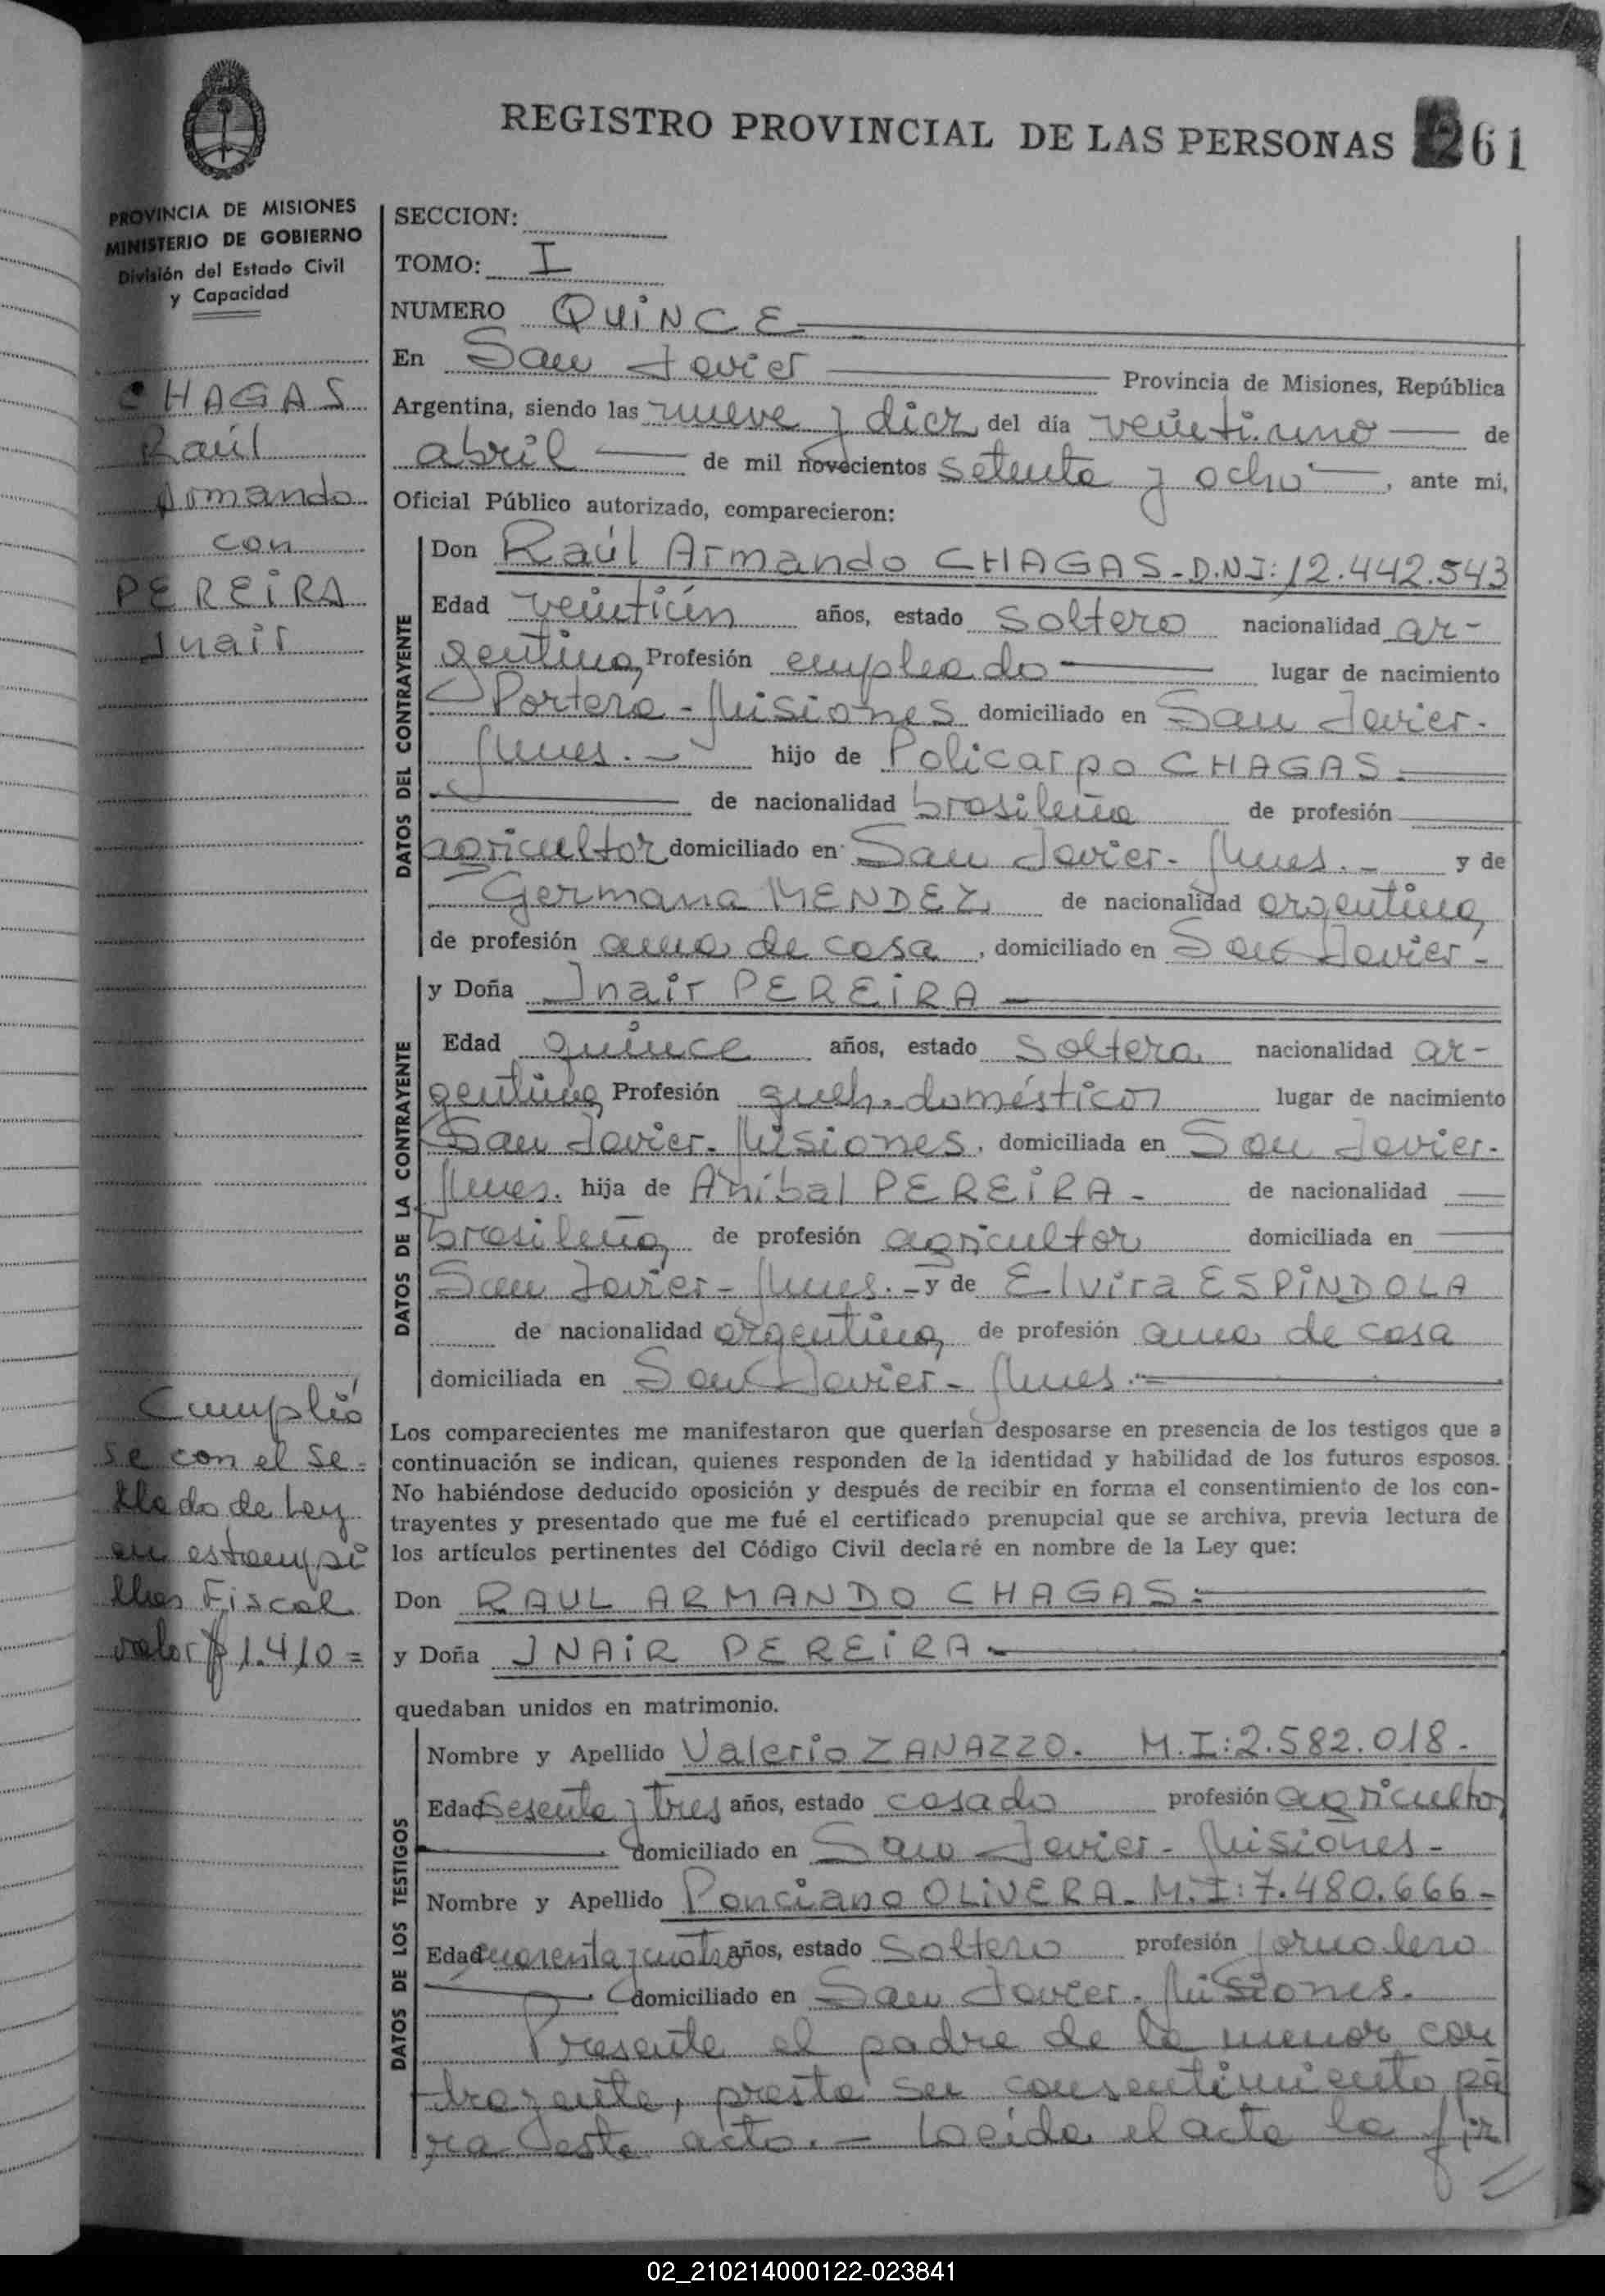 REGISTRO PROVINCIAL DE LAS PERSONAS 261
PROVINCIA DE MISIONES
MINISTERIO DE GOBIERNO
División del Estado Civil
y Capacidad
CHAGAS
Raúl
Armando
con
PEREIRA
Inair
Cumplió
se con el Se-
llado de Ley
en estampi
llas Fiscal
valor $ 1.410=
SECCION:
TOMO: I
NUMERO QUINCE
En San Javier Provincia de Misiones, República
Argentina, siendo las nueve y diez del día veintiuno de
abril de mil novecientos setenta y ocho, ante mi,
Oficial Público autorizado, comparecieron:
DATOS DEL CONTRAYENTE
Don Raúl Armando CHAGAS-D.N.I:12.442.543
Edad veintiún años, estado soltero nacionalidad ar-
gentina, Profesión empleado lugar de nacimiento
Portera-Misiones domiciliado en San Javier-
Mnes.- hijo de Policarpo CHAGAS.
de nacionalidad brasileña de profesión
agricultor domiciliado en San Javier-Mnes.- y de
Germana MENDEZ de nacionalidad argentina,
de profesión ama de casa, domiciliado en San Javier-
DATOS DE LA CONTRAYENTE
y Doña Inair PEREIRA
Edad quince años, estado soltera nacionalidad ar-
gentina, Profesión queh. domésticos lugar de nacimiento
San Javier-Misiones, domiciliada en San Javier-
Mnes. hija de Anibal PEREIRA- de nacionalidad
brasileña, de profesión agricultor domiciliada en
San Javier-Mnes.- y de Elvira ESPINDOLA
de nacionalidad argentina, de profesión ama de casa
domiciliada en San Javier-Mnes.
Los comparecientes me manifestaron que querían desposarse en presencia de los testigos que a
continuación se indican, quienes responden de la identidad y habilidad de los futuros esposos.
No habiéndose deducido oposición y después de recibir en forma el consentimiento de los con-
trayentes y presentado que me fué el certificado prenupcial que se archiva, previa lectura de
los artículos pertinentes del Código Civil declaré en nombre de la Ley que:
Don RAUL ARMANDO CHAGAS.
y Doña INAIR PEREIRA.
quedaban unidos en matrimonio.
DATOS DE LOS TESTIGOS
Nombre y Apellido Valerio ZANAZZO. M.I:2.582.018-
Edad sesenta y tres años, estado casado profesión agricultor
domiciliado en San Javier-Misiones-
Nombre y Apellido Ponciano OLIVERA-M.I:7.480.666-
Edad cuarenta y cuatro años, estado soltero profesión jornalero
domiciliado en San Javier-Misiones.
Presente el padre de la menor con
trayente, presta su consentimiento pa
ra este acto.- Leida el acta la fir
02_210214000122-023841